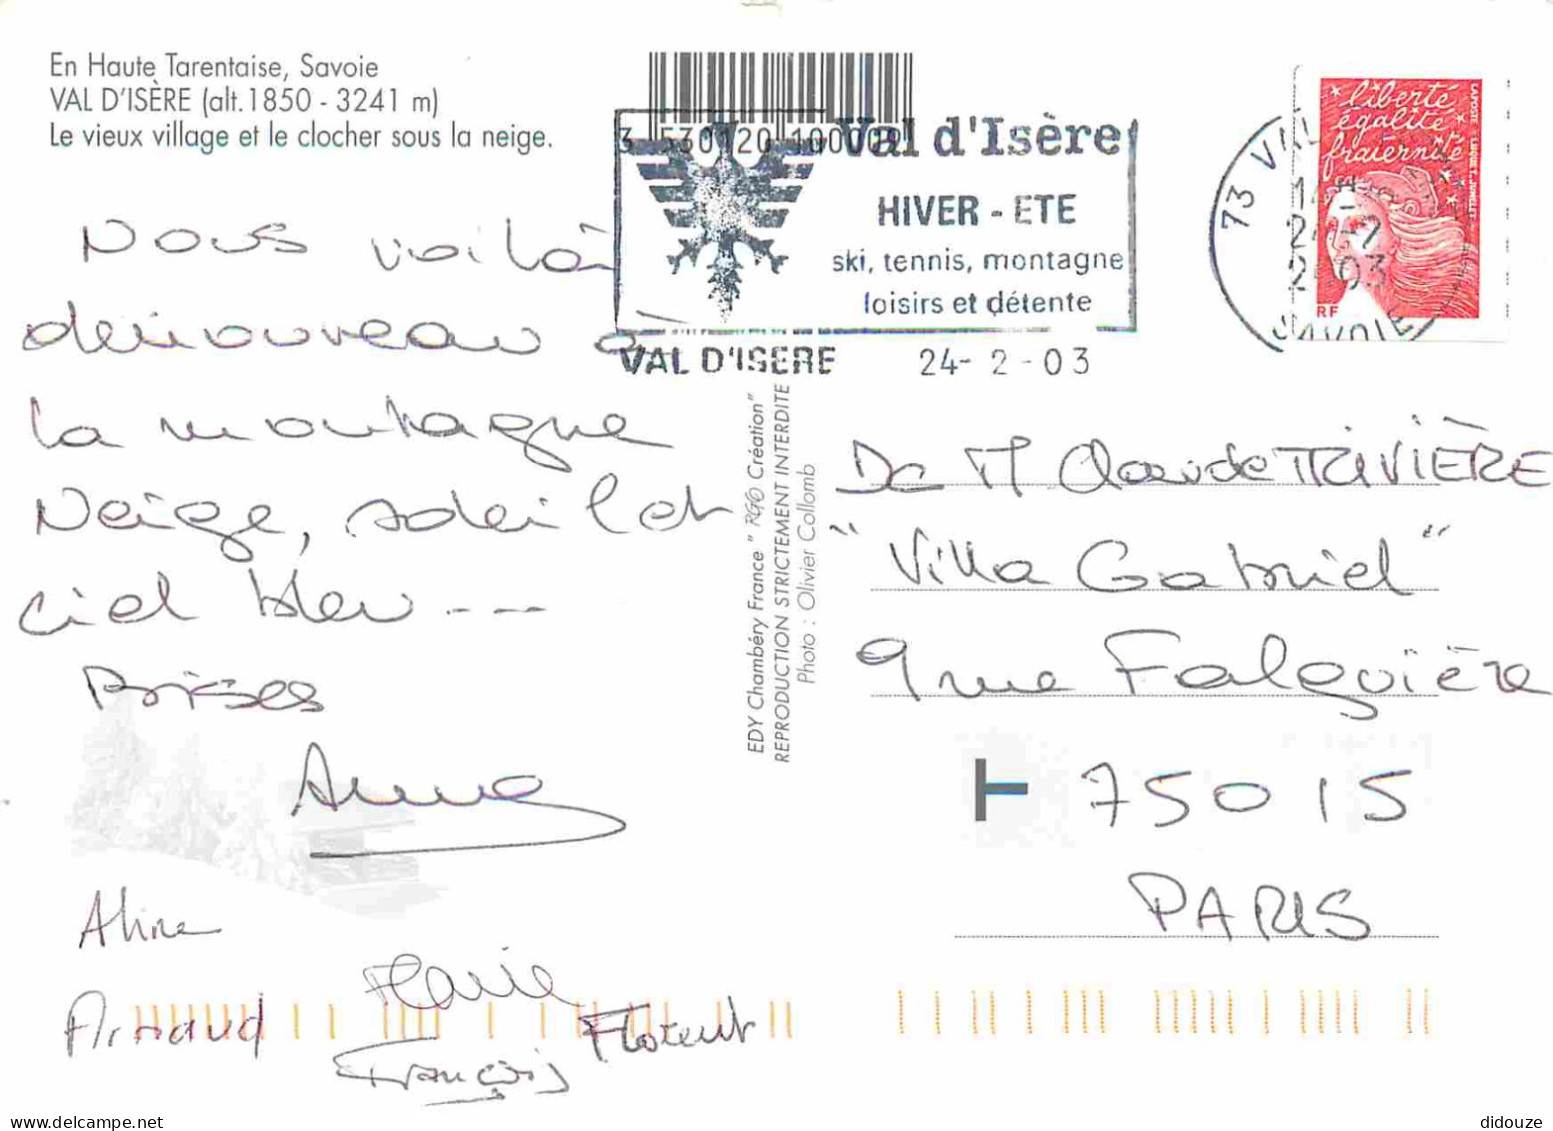 En Haute Tarentaise, Savoie
VAL D'ISÈRE (alt.1850 - 3241 m)
Le vieux village et le clocher sous la neige.
Nous voilà
de nouveau à
la montagne
Neige, soleil et
ciel bleu ---
Bises
Anne
Aline
Marie
Arnaud
François
Florent
Val d'Isère
HIVER - ETE
ski, tennis, montagne
loisirs et détente
VAL D'ISERE 24-2-03
EDY Chambéry France " RGO Création"
REPRODUCTION STRICTEMENT INTERDITE
Photo : Olivier Collomb
liberté
égalité
fraternité
LAPOSTE
RF
73 VAL
SAVOIE
Claude RIVIÈRE
"Villa Gabriel"
9 rue Falguière
T 75015
PARIS
didouze